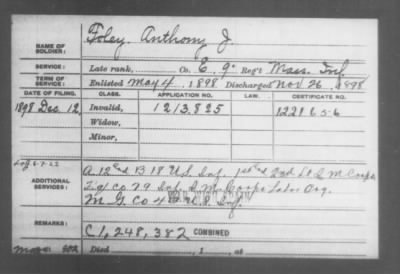 NAME OF SOLDIER: Foley, Anthony J.
SERVICE: Late rank, Co. E, 9" Reg't Mass. Inf.
TERM OF SERVICE: Enlisted May 4, 1898 Discharged Nov 26, 1898
DATE OF FILING. CLASS. APPLICATION NO. LAW. CERTIFICATE NO.
1898 Dec. 12 Invalid, 1213825 1221656
Widow,
Minor,
ADDITIONAL SERVICES: B 18 U.S. Inf. 2nd Lt. Q M Corps
Co 79 Q. M. Corps Labor Org.
M G Co U.S. Inf.
REMARKS: C 1,248,382 COMBINED
Died , 1 , at